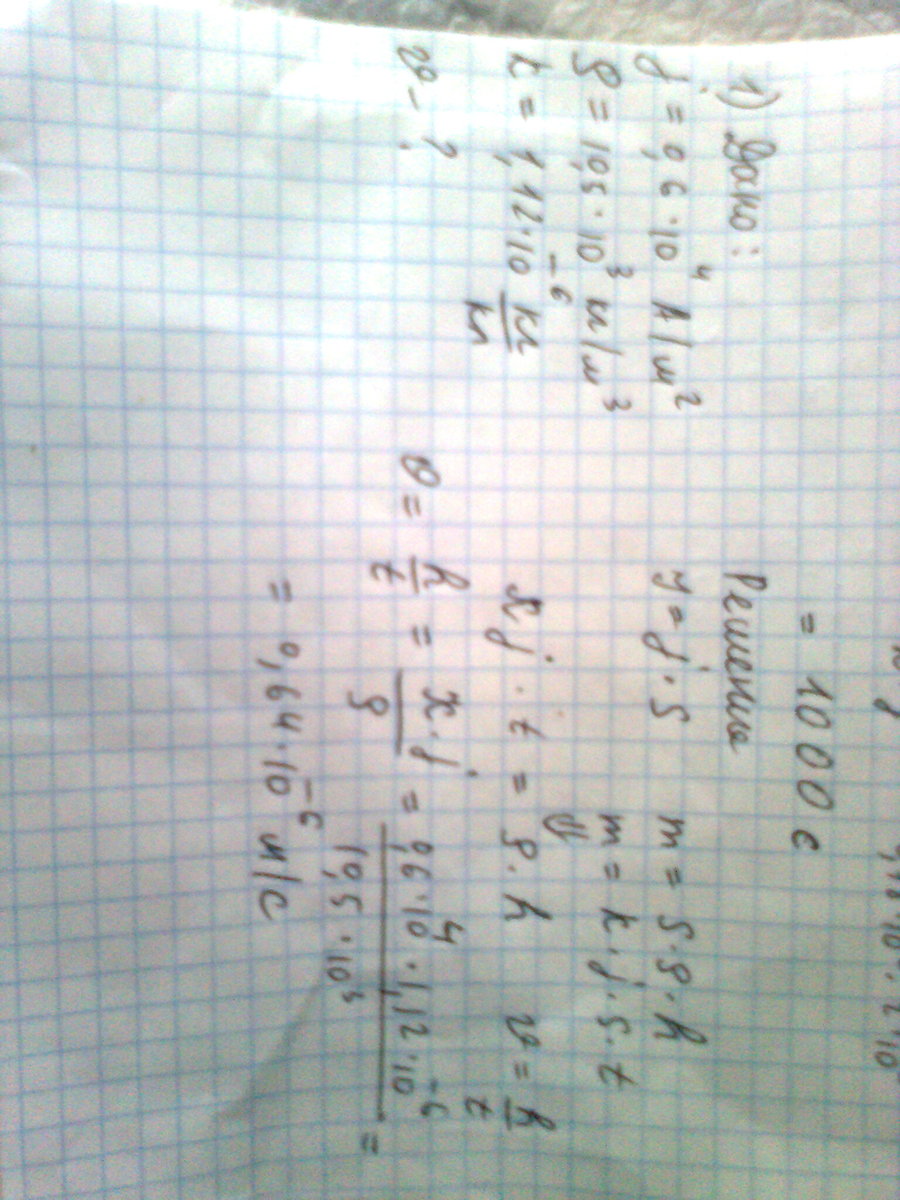 = 1000 с
1) Дано:
j = 0,6 · 10⁴ А/м²
ρ = 10,5 · 10³ кг/м³
k = 1,12 · 10⁻⁶ кг/кл
v - ?
Решение
У = j · S m = S · ρ · h
m = k · j · S · t
k j · t = ρ · h v = h/t
v = h/t = k · j/ρ = 0,6 · 10⁴ · 1,12 · 10⁻⁶/10,5 · 10³ =
= 0,64 · 10⁻⁶ м/с